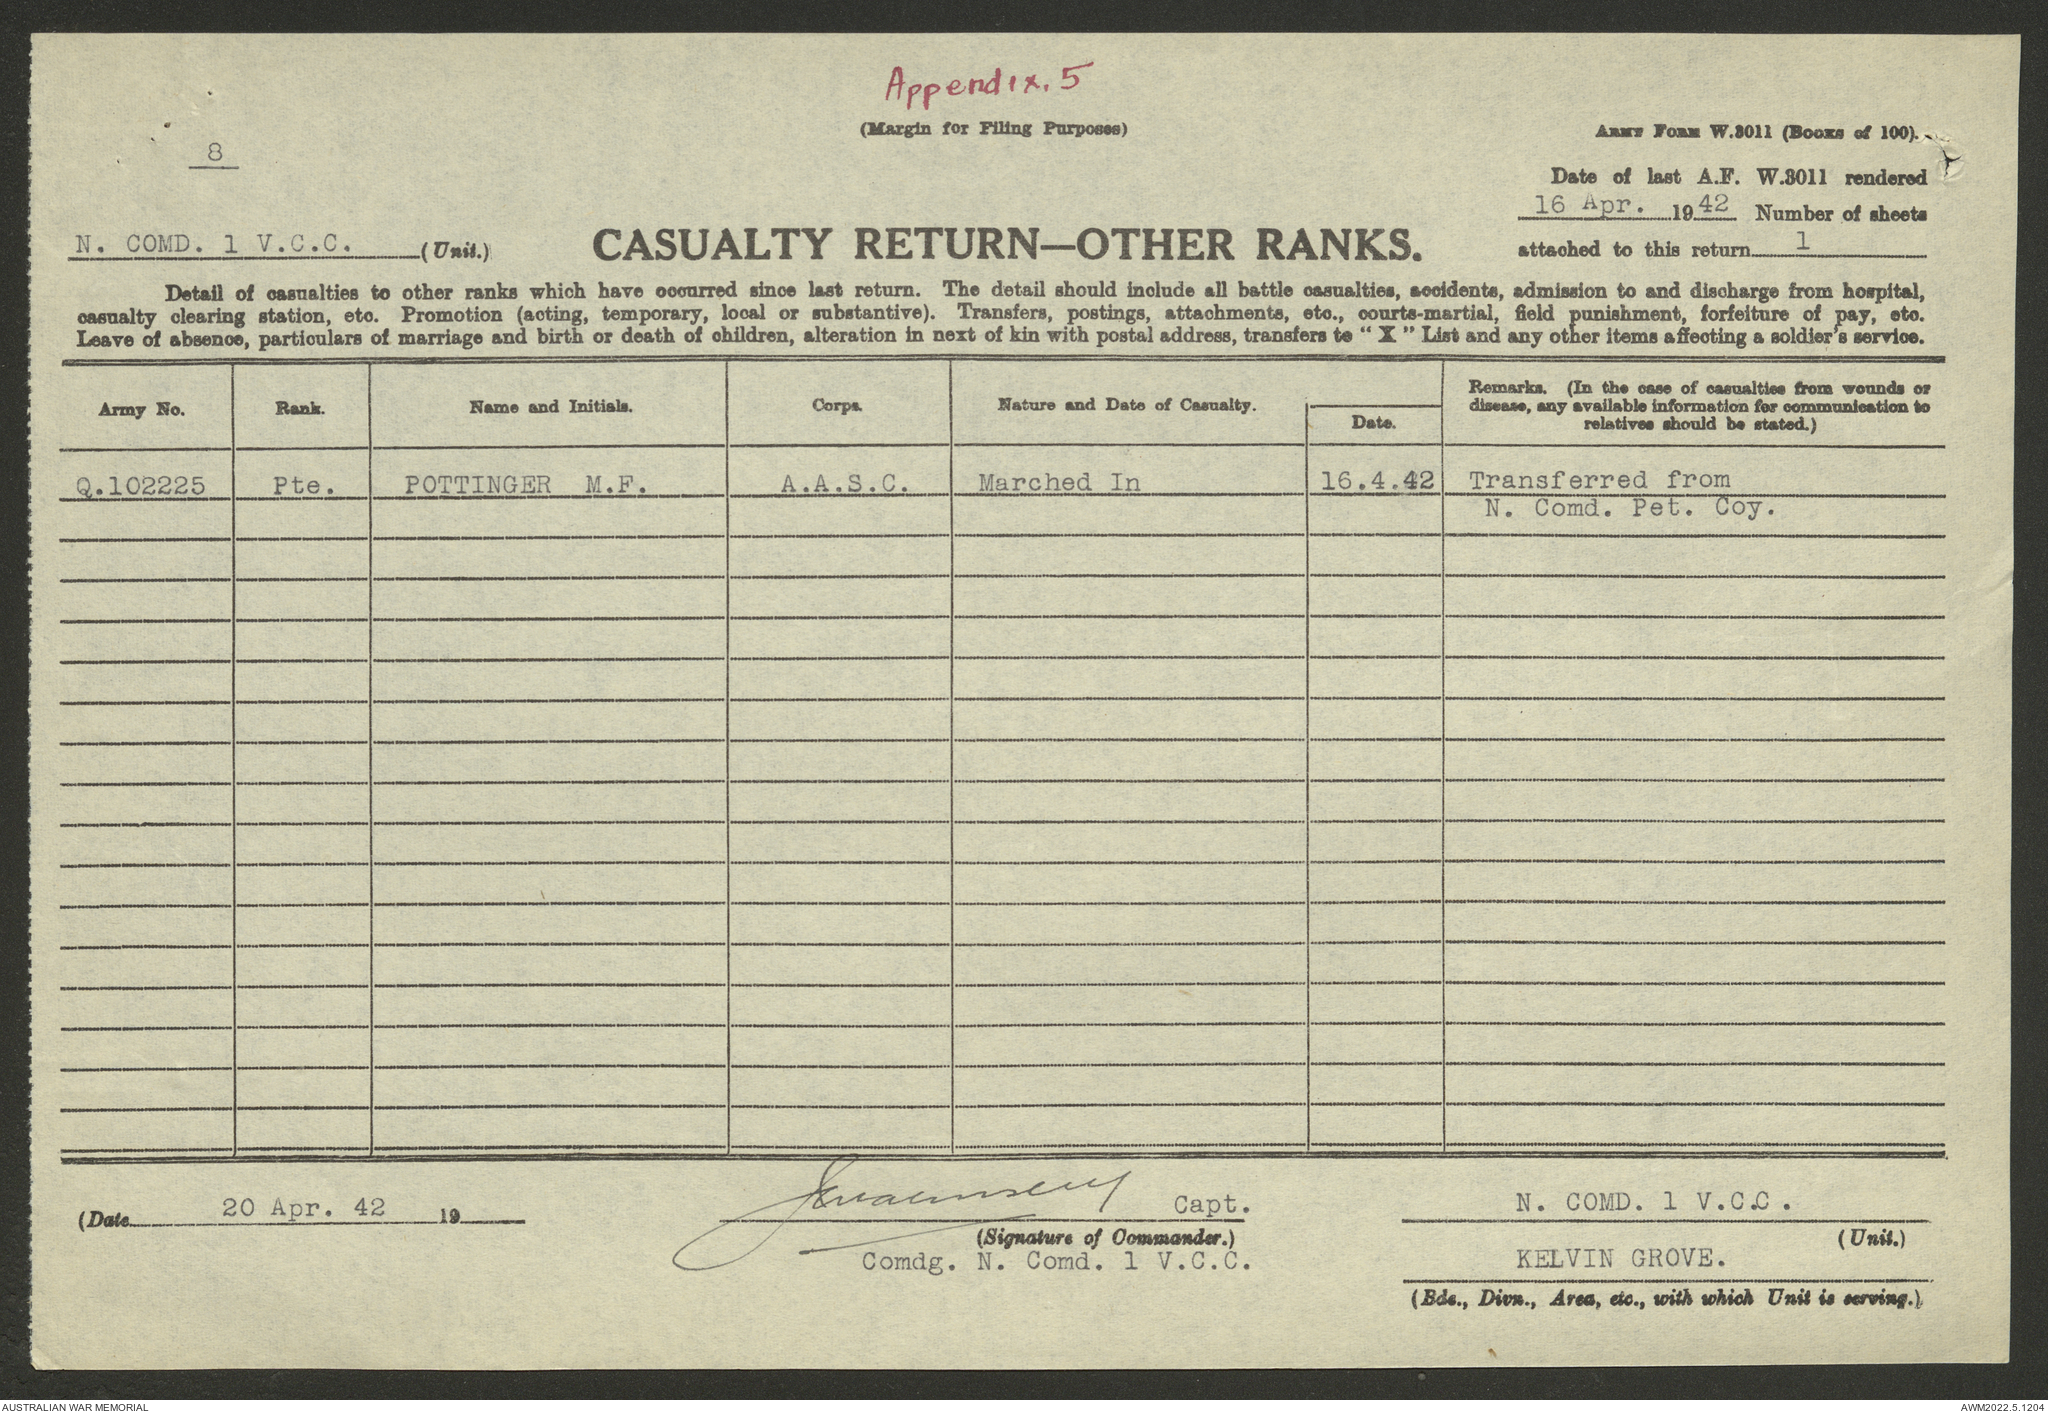 Appendix. 5
(Margin for Filing Purposes)
ARMY FORM W.3011 (BOOKS of 100).
8
Date of last A.F. W.3011 rendered
16 Apr. 1942 Number of sheets
attached to this return 1
N. COMD. 1 V.C.C. (Unit.)
CASUALTY RETURN—OTHER RANKS.
Detail of casualties to other ranks which have occurred since last return. The detail should include all battle casualties, accidents, admission to and discharge from hospital,
casualty clearing station, etc. Promotion (acting, temporary, local or substantive). Transfers, postings, attachments, etc., courts-martial, field punishment, forfeiture of pay, etc.
Leave of absence, particulars of marriage and birth or death of children, alteration in next of kin with postal address, transfers to "X" List and any other items affecting a soldier's service.
Army No. Rank. Name and Initials. Corps. Nature and Date of Casualty. Date. Remarks. (In the case of casualties from wounds or
disease, any available information for communication to
relatives should be stated.)
Q.102225 Pte. POTTINGER M.F. A.A.S.C. Marched In 16.4.42 Transferred from
N. Comd. Pet. Coy.
(Date 20 Apr. 42 19
Capt.
(Signature of Commander.)
Comdg. N. Comd. 1 V.C.C.
N. COMD. 1 V.C.C.
(Unit.)
KELVIN GROVE.
(Bde., Divn., Area, etc., with which Unit is serving.)
AUSTRALIAN WAR MEMORIAL
AWM2022.5.1204